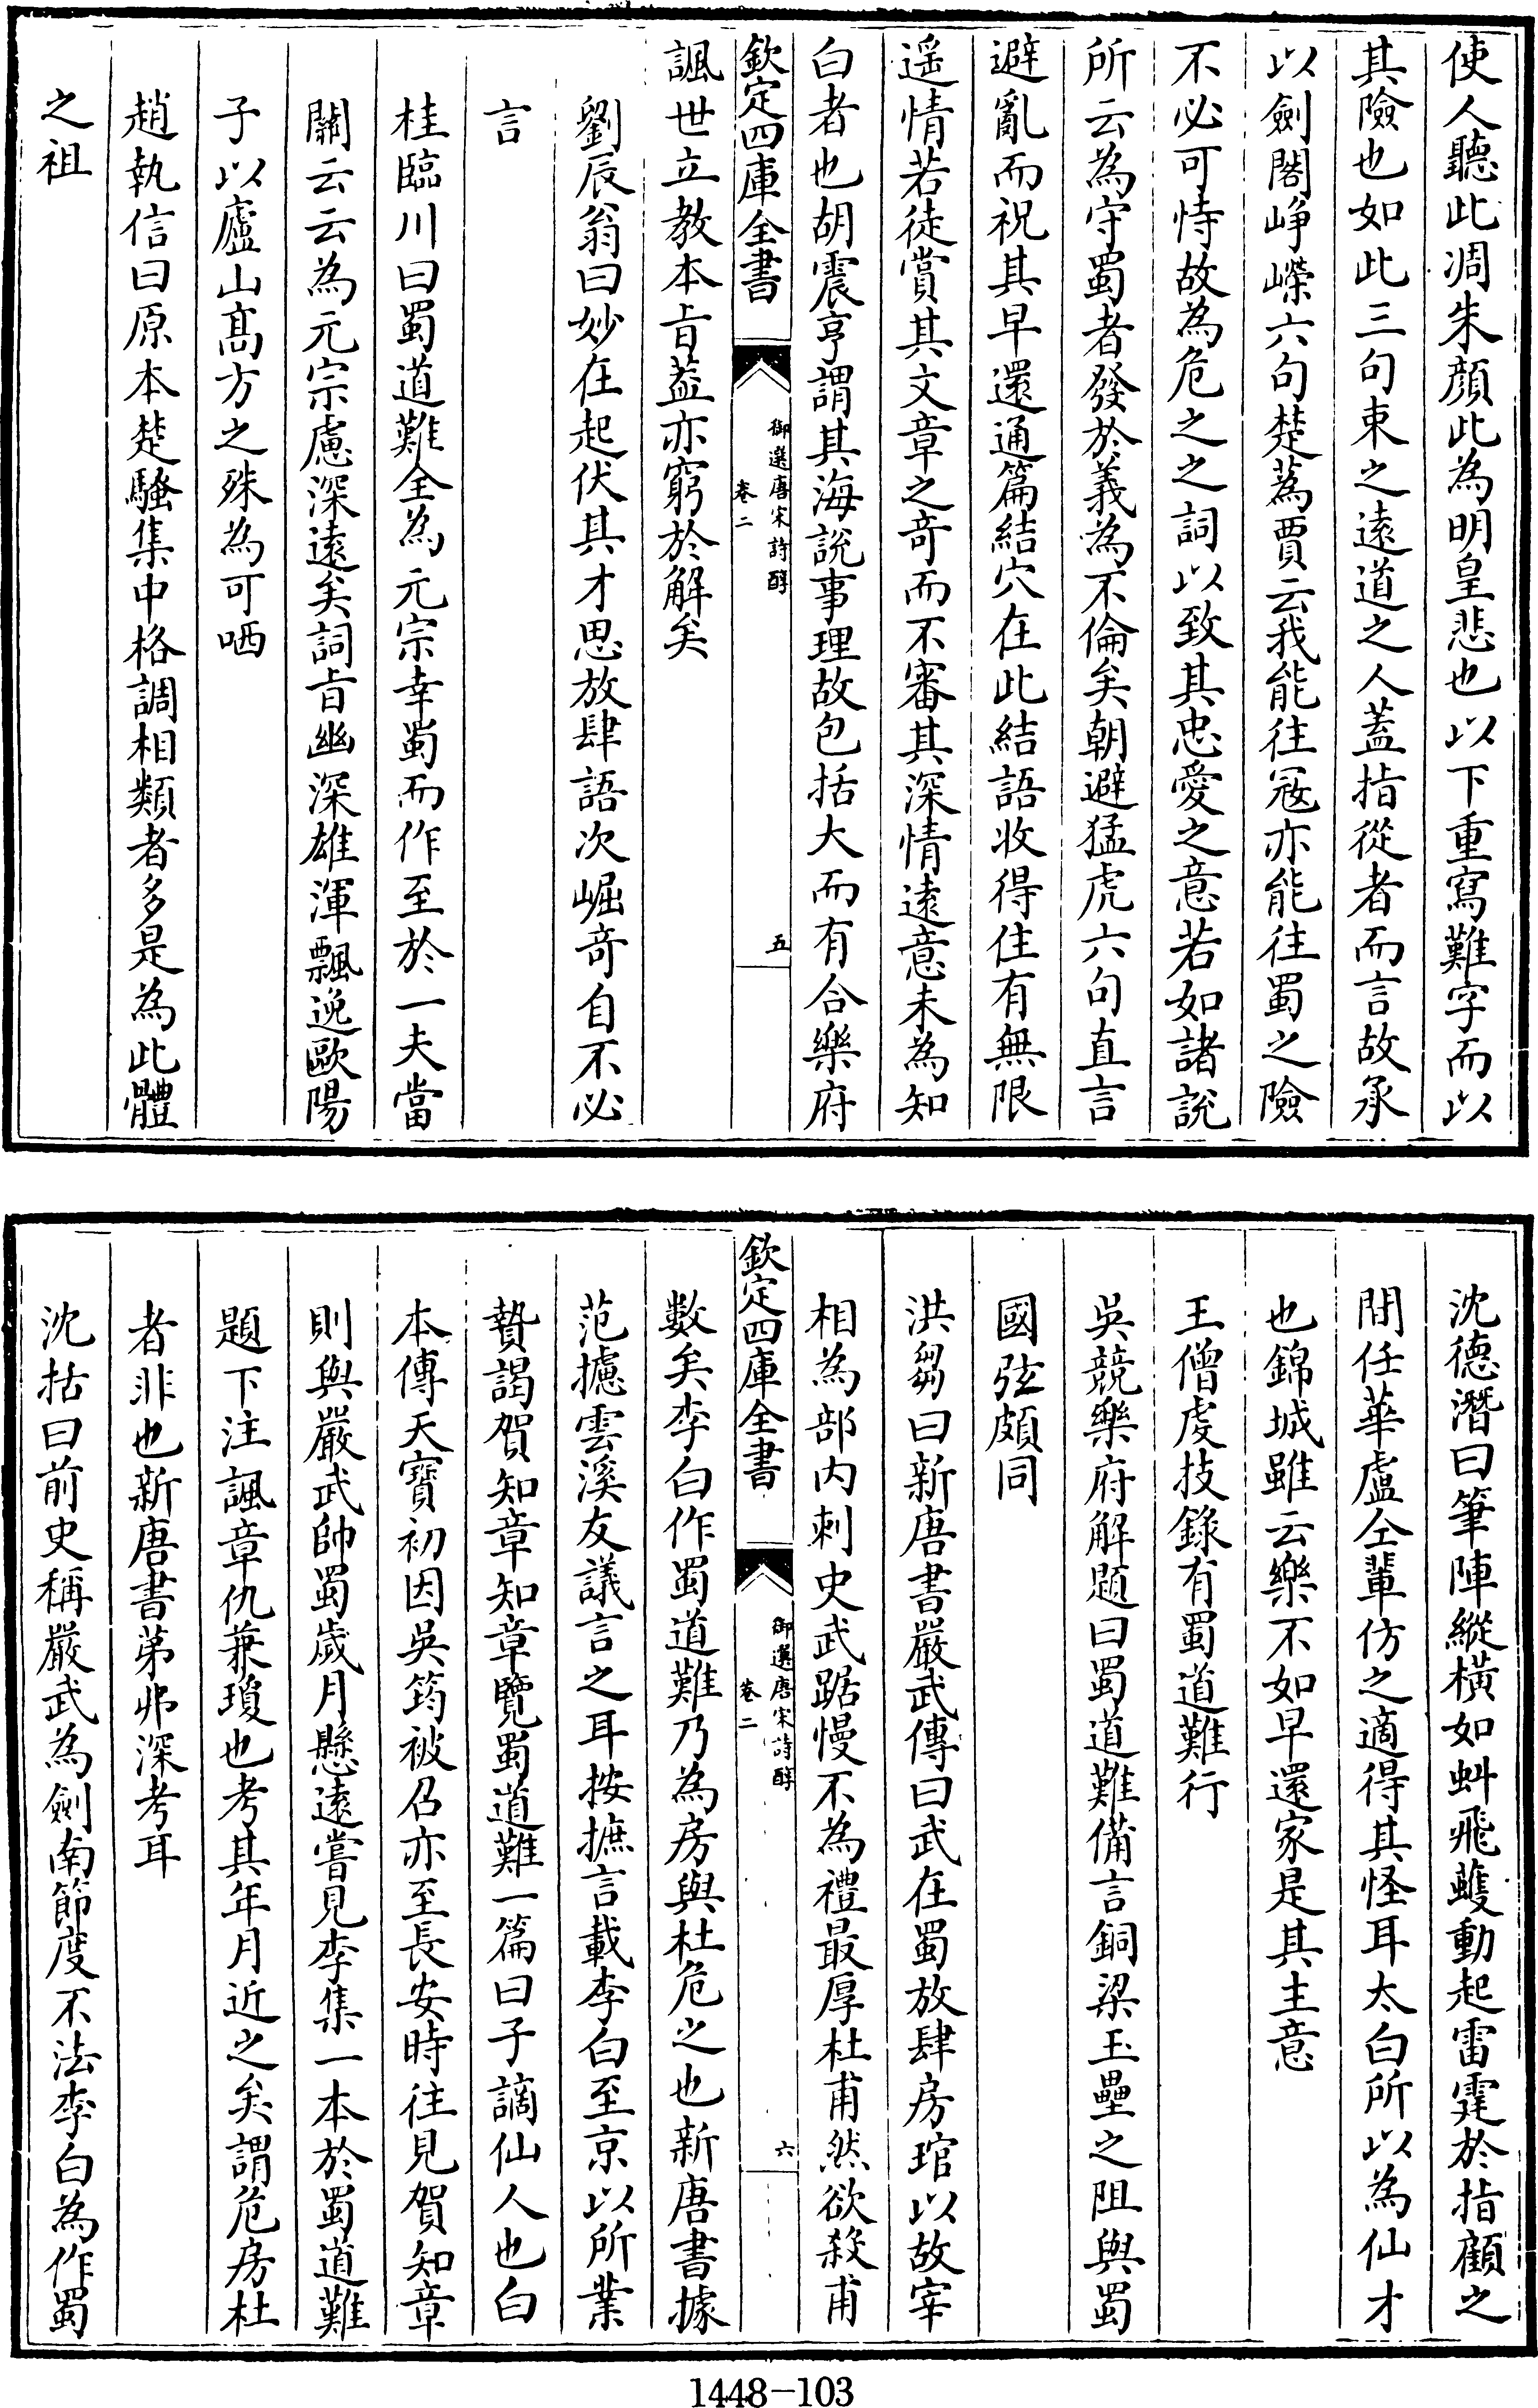 使人聽此凋朱顏此為明皇悲也以下重寫難字而以
其險也如此三句束之遠道之人蓋指從者而言故承
以劍閣崢嶸六句楚蔿賈云我能往冦亦能往蜀之險
不必可恃故為危之之詞以致其忠愛之意若如諸說
所云為守蜀者發於義為不倫矣朝避猛虎六句直言
避亂而祝其早還通篇結穴在此結語收得住有無限
遥情若徒賞其文章之奇而不審其深情遠意未為知
白者也胡震亨謂其海說事理故包括大而有合樂府
欽定四庫全書
御選唐宋詩醇
卷二
五
諷世立教本㫖葢亦窮於解矣
劉辰翁曰妙在起伏其才思放肆語次崛奇自不必
言
桂臨川曰蜀道難全為元宗幸蜀而作至於一夫當
關云云為元宗慮深遠矣詞㫖幽深雄渾飄逸歐陽
子以廬山髙方之殊為可哂
趙執信曰原本楚騷集中格調相類者多是為此體
之祖
沈德潛曰筆陣縱橫如虯飛蠖動起雷霆於指顧之
間任華盧仝輩仿之適得其怪耳太白所以為仙才
也錦城雖云樂不如早還家是其主意
王僧虔技錄有蜀道難行
吳競樂府解題曰蜀道難備言銅梁玉壘之阻與蜀
國弦頗同
洪芻曰新唐書嚴武傳曰武在蜀放肆房琯以故宰
相為部内刺史武踞慢不為禮最厚杜甫然欲殺甫
欽定四庫全書
御選唐宋詩醇
卷二
六
數矣李白作蜀道難乃為房與杜危之也新唐書據
范攄雲溪友議言之耳按摭言載李白至京以所業
贄謁賀知章知章覽蜀道難一篇曰子謫仙人也白
本傳天寶初因吳筠被召亦至長安時往見賀知章
則與嚴武帥蜀嵗月懸遠嘗見李集一本於蜀道難
題下注諷章仇兼瓊也考其年月近之矣謂危房杜
者非也新唐書弟弗深考耳
沈括曰前史稱嚴武為劍南節度不法李白為作蜀
1448-103